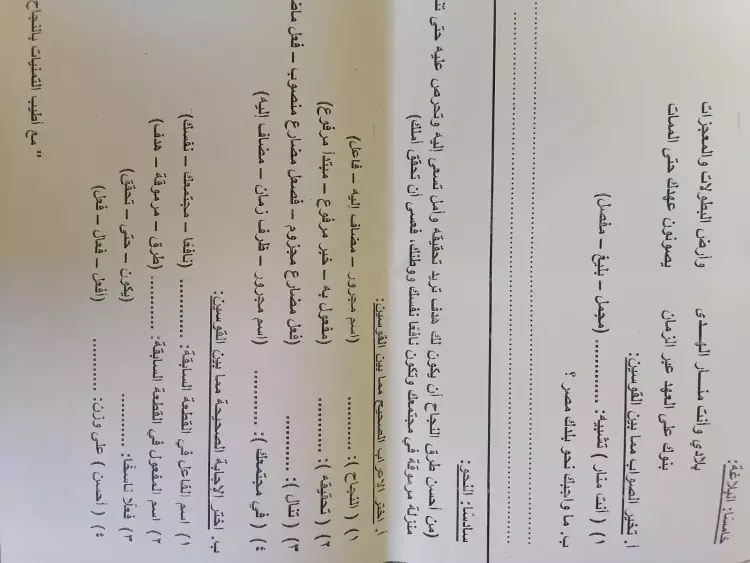 خامسًا: البلاغة:
بلادي وأنت منـار الهـدى وأرض البطولات والمعجزات
بنوك على العهد عبر الزمان يصونون عهدك حتى الممات
أ. تخير الصواب مما بين القوسين:
١) ( أنت منار ) تشبيه: ............ (مجمل – بليغ – مفصل)
ب. ما واجبك نحو بلدك مصر ؟
سادسًا: النحو:
(من أحسن طرق النجاح أن يكون لك هدف تريد تحقيقه وأمل تسعى إليه وتحرص عليه حتى
منزلة مرموقة في مجتمعك وتكون نافعًا نفسك ووطنك، فعسى أن تحقق أملك)
أ. اختر الاعراب الصحيح مما بين القوسين:
١) ( النجاح ): ............ (اسم مجرور – مضاف إليه – فاعل)
٢) ( تحقيقه ): ............ (مفعول به – خبر مرفوع – مبتدأ مرفوع)
٣) ( تنال ): ............ (فعل مضارع مجزوم – فصعل مضارع منصوب – فعل
٤) ( في مجتمعك ): ............ (اسم مجرور – ظرف زمان – مضاف إليه)
ب. اختر الاجابة الصحيحة مما بين القوسين:
١) اسم الفاعل في القطعة السابقة: ............ (نافعًا – مجتمعك – نفسك)
٢) اسم المفعول في القطعة السابقة: ............ (طرق – مرموقة – هدف)
٣) فعلًا ناسخًا: ............ (يكون – حتى – تحقق)
٤) ( أحسن ) على وزن: ............ (افعل – فعال – فعل)
" مع أطيب التمنيات بالنجاح